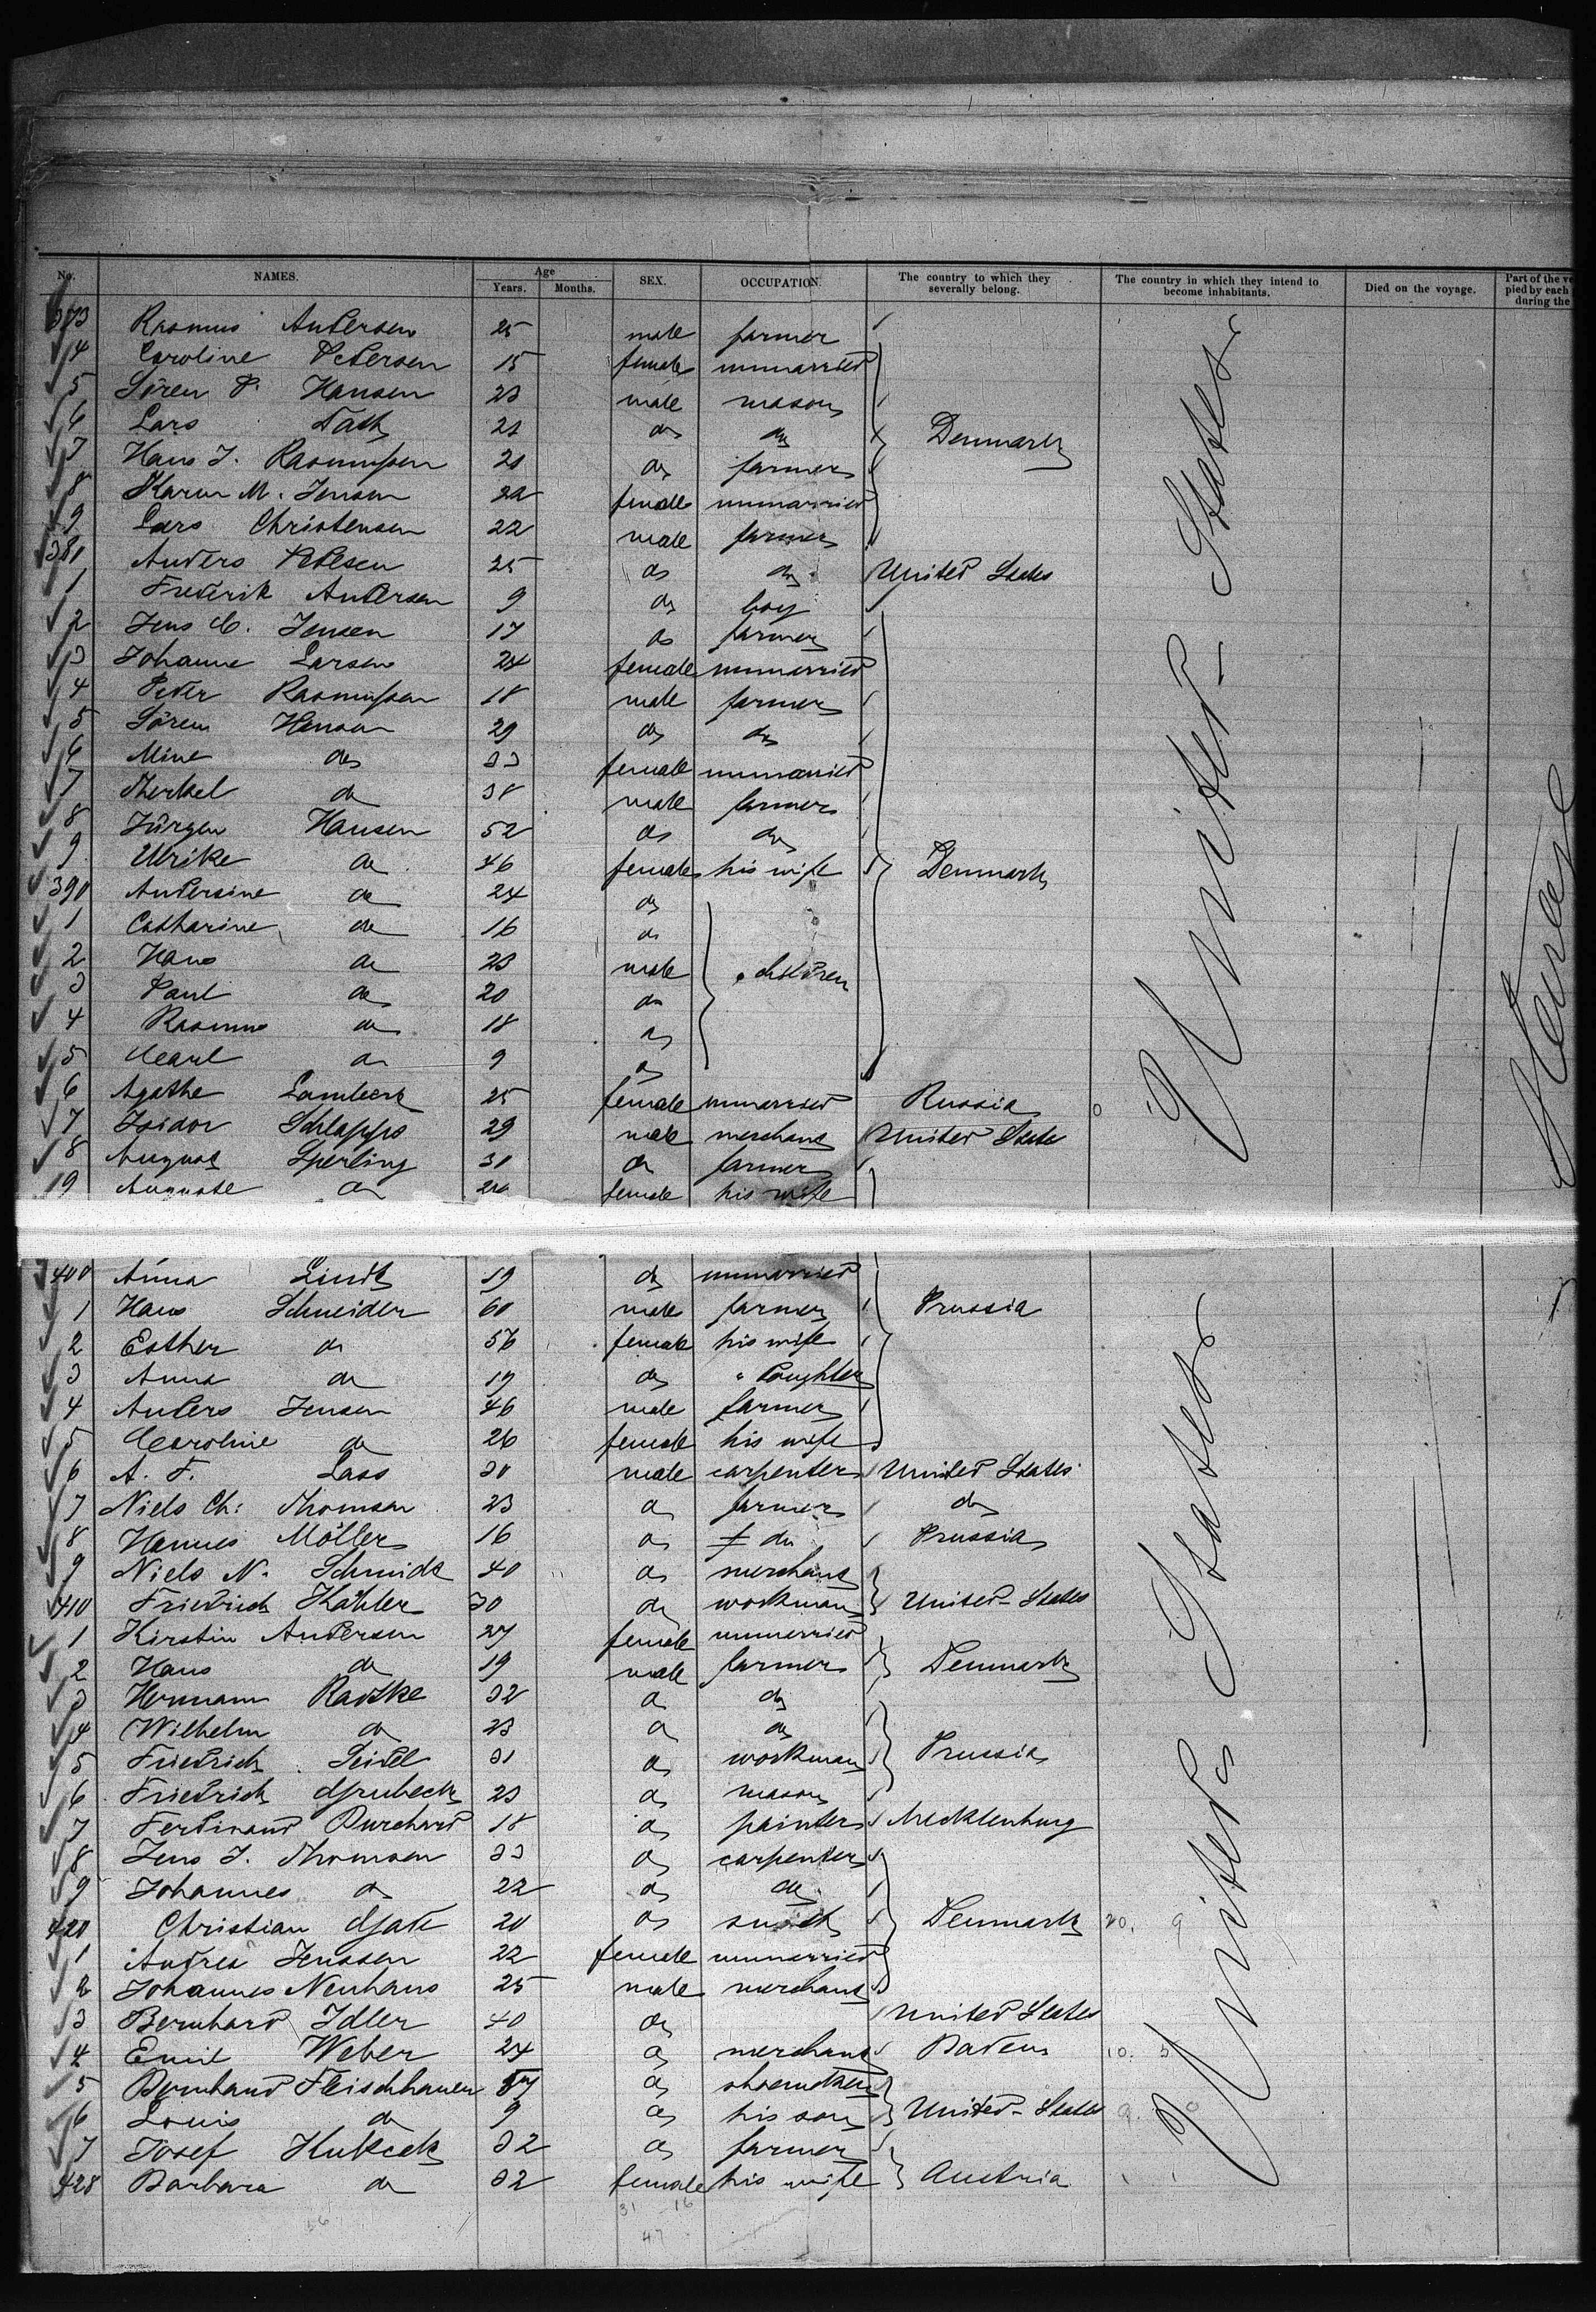 No. NAMES. Age Years. Months. SEX. OCCUPATION. The country to which they severally belong. The country in which they intend to become inhabitants. Died on the voyage. Part of the ve pied by each during the
373 Rasmus Andersen 25 male farmer
4 Caroline Petersen 15 female unmarried
5 Sören P. Hansen 23 male mason
6 Lars 21 do do Denmark
7 Hans J. Rasmussen 21 do farmer
8 Karen M. Jensen 22 female unmarried
9 Lars Christensen 22 male farmer
380 Anders Petersen 25 do do United States
1 Frederik Andersen 9 do boy
2 Jens C. Jensen 17 do farmer
3 Johanne Larsen 24 female unmarried
4 Peter Rasmussen 18 male farmer
5 Sören Hensen 29 do do
6 Mine do 33 female unmarried
7 Therkel do 38 male farmer
8 Jürgen Hansen 52 do do
9 Ulrike do 46 female his wife Denmark
390 Andersine do 24 do
1 Catharine do 16 do
2 Hans do 23 male children
3 Paul do 20 do
4 Rasmus do 18 do
5 Carl do 9 do
6 Agathe Lambert 25 female unmarried Russia
7 Isidor 29 male merchant United States
8 August Sperling 31 do farmer
9 Auguste do female his wife
400 Anna Lindt 19 do unmarried
1 Hans Schneider 60 male farmer Prussia
2 Esther do 56 female his wife
3 Anna do 19 do " daughter
4 Anders Jensen 46 male farmer
5 Caroline do 26 female his wife
6 A. F. Lass 30 male carpenter United States
7 Niels Ch: Thomsen 23 do farmer do
8 Hannes Möller 16 do do Prussia
9 Niels N. Schmidt 40 do merchant
410 Friedrich Kähler 30 do workman United States
1 Kirstin Andersen 27 female unmarried
2 Hans do 19 male farmer Denmark
3 Hermann Radtke 32 do do
4 Wilhelm do 23 do do
5 Friedrich Seidel 31 do workman Prussia
6 Friedrich Grubeck 23 do mason
7 Ferdinand Burchard 18 do painter Mecklenburg
8 Jens J. Thomsen 33 do carpenter
9 Johannes do 22 do do
420 Christian Gade 20 do smith Denmark
1 Andrea Jenssen 22 female unmarried
2 Johannes Neuhaus 25 male merchant
3 Bernhard Idler 40 do United States
4 Emil Weber 24 do merchant Baden
5 Bernhard Fleischhauer do shoemaker
6 Louis do 9 do his son United States
7 Josef 32 do farmer
428 Barbara do 32 female his wife Austria
United States
United States
31 16
47
56